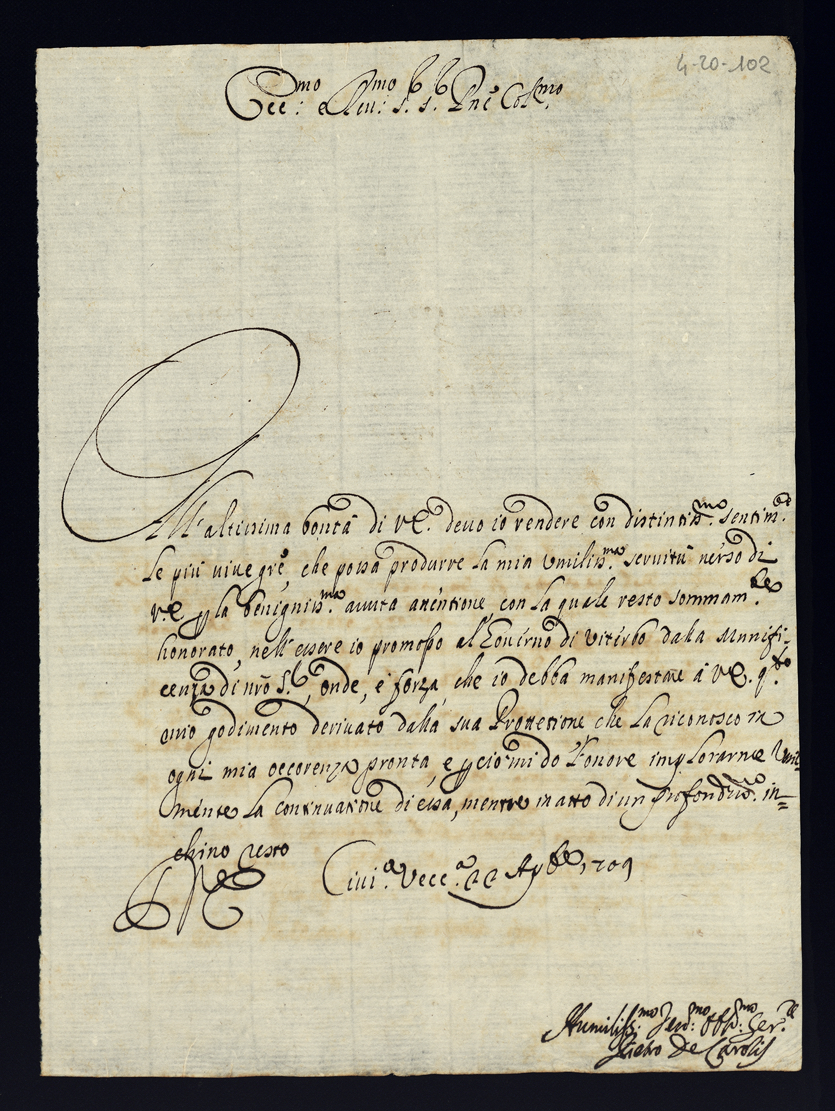 4-20-102
Ecc:mo e Rev:mo S.r S.r Pne Col.mo
All'altissima bontà di V.E. devo io rendere con distintiss.mo sentim.to
le più vive gre, che possa produrre la mia umiliss.ma servitù verso di
V.E. p la benigniss.ma avuta attentione, con la quale resto sommam.te
honorato, nell'essere io promosso al Governo di Viterbo dalla Munifi-
cenza di nro S.re, onde, è forza, che io debba manifestare à V.E. q.to
mio godimento derivato dalla sua Protettione che la riconosco in
ogni mia occorenza pronta, e p ciò mi do l'onore implorarne
mente la continuatione di essa, mentre in atto di un profondiss.mo in=
chino resto
Civi.a Vecc.a 22 Aple 1709
Humiliss.mo Dev.mo Obb.mo Ser.re
Pietro De Carolis